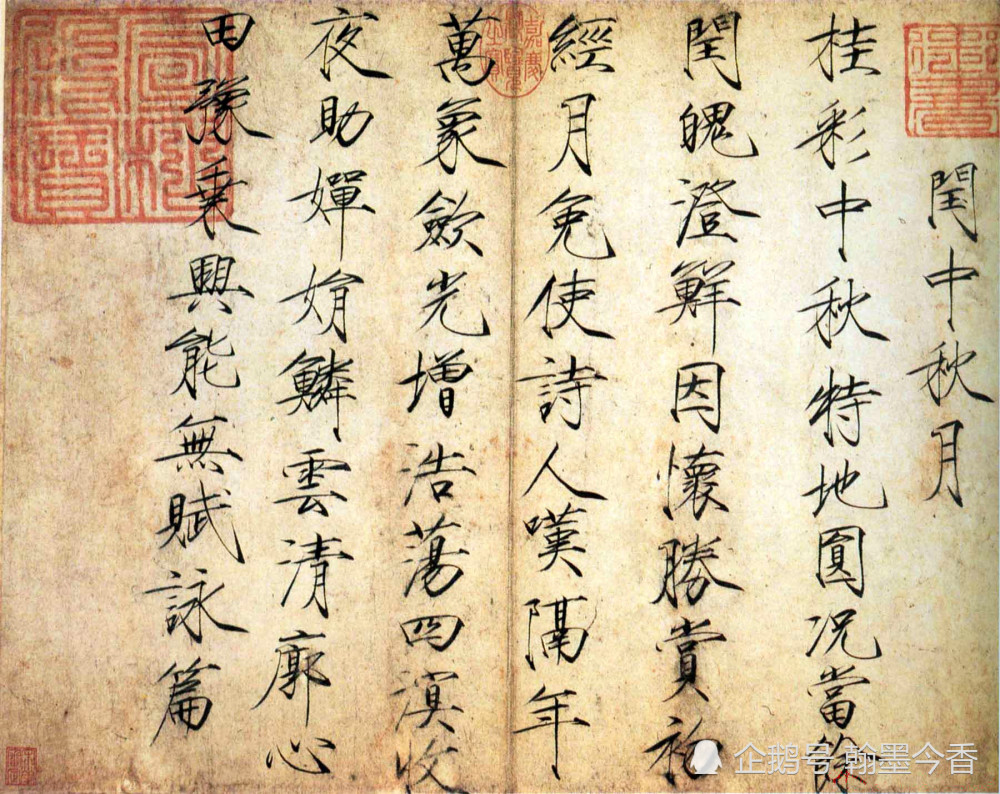 閏中秋月
桂彩中秋特地圓况當餘
閏魄澄鮮因懷勝賞初
經月免使詩人嘆隔年
萬象歛光增浩蕩四溟收
夜助嬋娟鱗雲清廓心
田豫乗興能無賦詠篇
企鹅号 翰墨今香